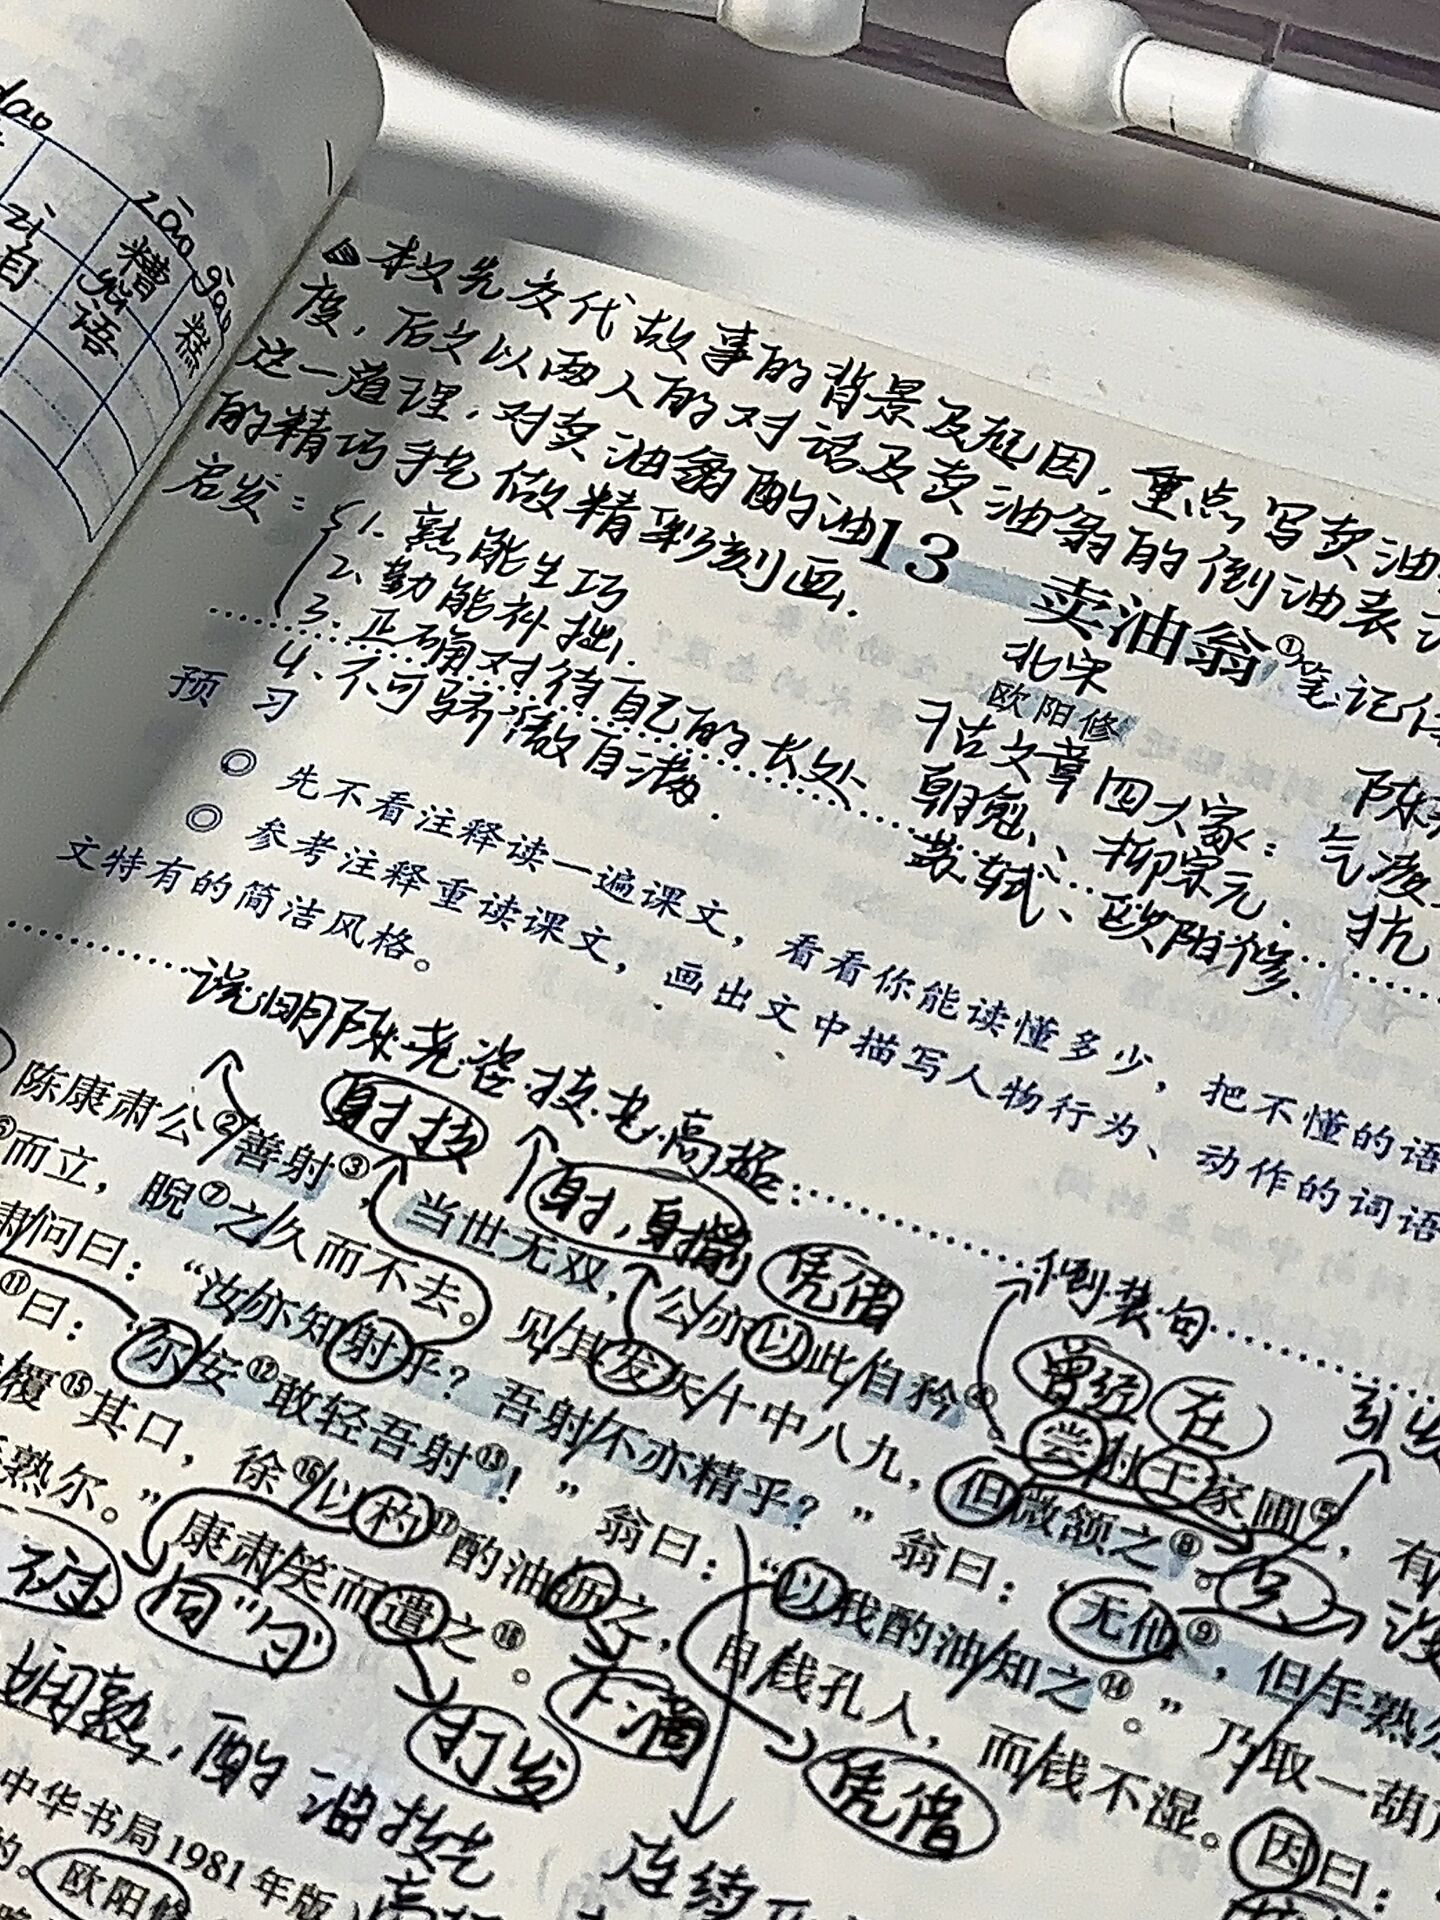 dao
zāo gāo
zì
自
糟糕
语
本文先交代故事的背景及起因,重点写卖油
度,后文以两人的对话及卖油翁的倒油表
这一道理,对卖油翁酌油
的精巧手艺做精彩刻画.
启发:
1.熟能生巧
2、勤能补拙.
3.正确对待自己的长处
4、不可骄傲自满.
13 卖油翁①
笔记
北宋
欧阳修
千古文章四大家:
韩愈、柳宗元.
苏轼、欧阳修.
陈
气
抗
预习
◎ 先不看注释读一遍课文,看看你能读懂多少,把不懂的语
◎ 参考注释重读课文,画出文中描写人物行为、动作的词语
文特有的简洁风格。
说明陈尧咨技艺高超
射技
射,射箭
凭借
倒装句
曾经
在
陈康肃公②善射③,当世无双,公亦以此自矜④。尝射于家圃⑤,有
⑥而立,睨⑦之久而不去。见其发矢十中八九,但微颔之⑧。
只
肃问曰:“汝亦知射乎?吾射不亦精乎?”翁曰:“无他⑨,但手熟
⑪曰:“尔安⑫敢轻吾射⑬!”翁曰:“以我酌油知之⑭。”乃取一葫
覆⑮其口,徐⑯以杓⑰酌油沥之,自钱孔入,而钱不湿。因曰:
熟尔。”康肃笑而遣之⑱。
同“勺”
下滴
打发
凭借
娴熟,酌油技艺
高
连续
中华书局1981年版
的。欧阳修